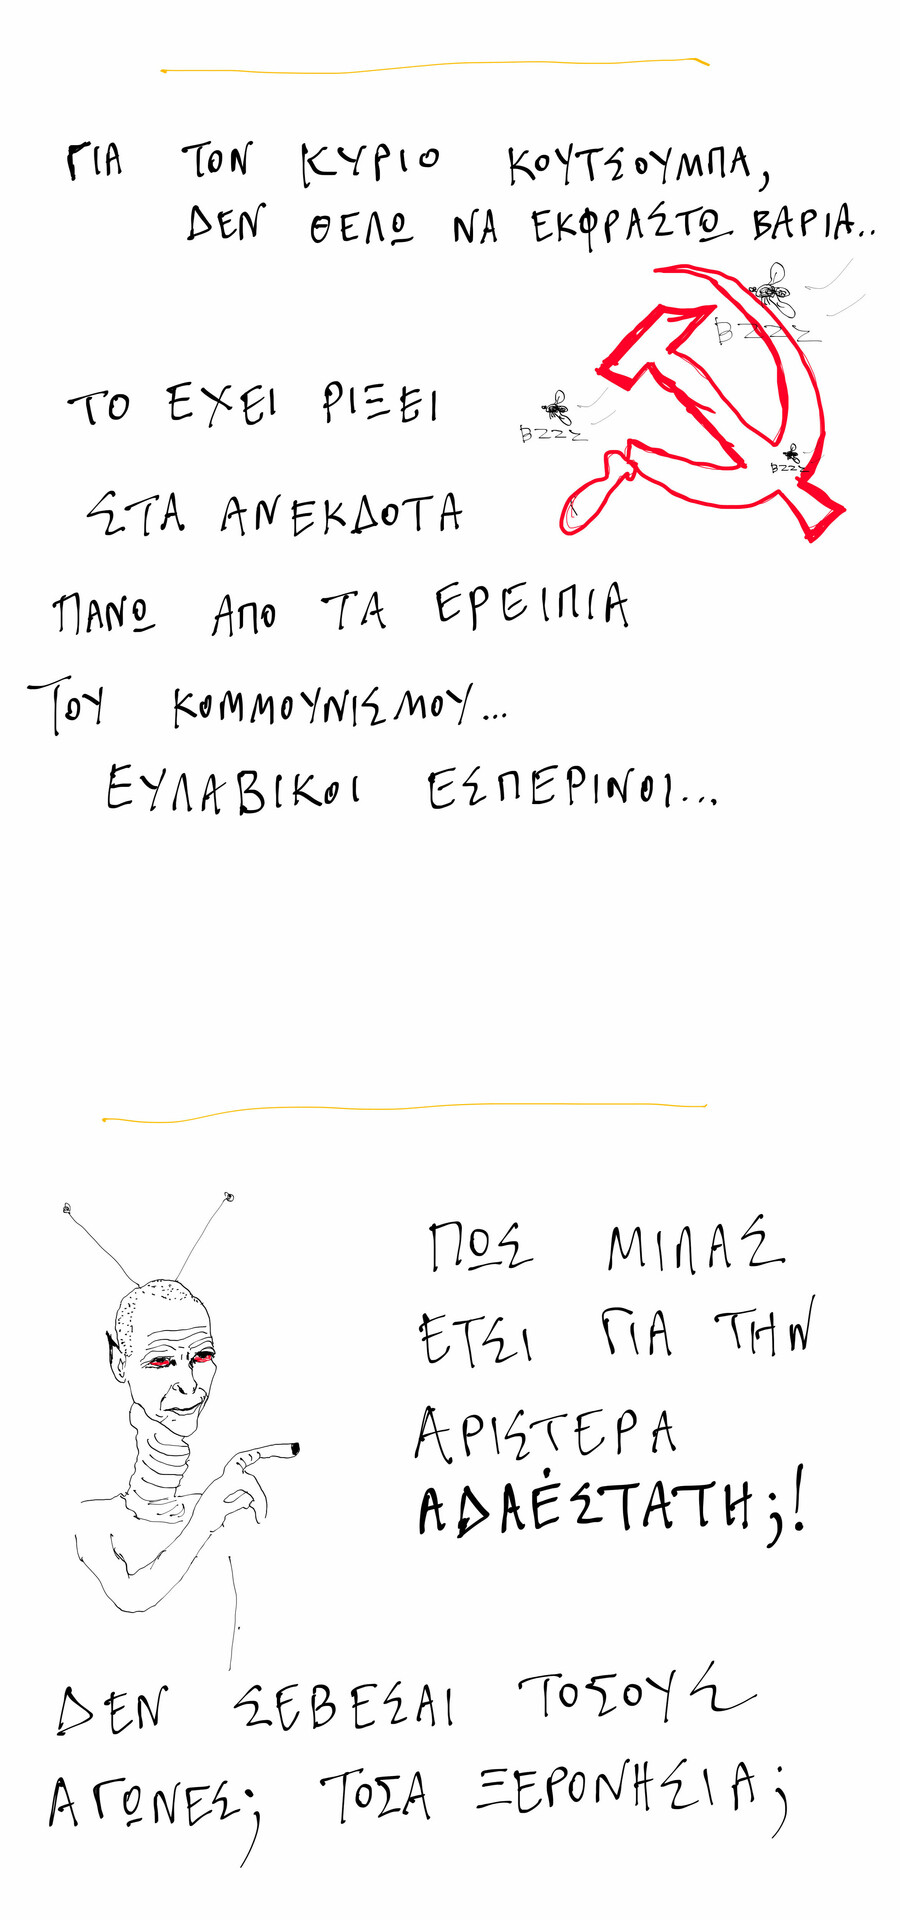 ΓΙΑ ΤΟΝ ΚΥΡΙΟ ΚΟΥΤΣΟΥΜΠΑ,
ΔΕΝ ΘΕΛΩ ΝΑ ΕΚΦΡΑΣΤΩ ΒΑΡΙΑ..
BZZZ
ΤΟ ΕΧΕΙ ΡΙΞΕΙ
BZZZ
BZZZ
ΣΤΑ ΑΝΕΚΔΟΤΑ
ΠΑΝΩ ΑΠΟ ΤΑ ΕΡΕΙΠΙΑ
ΤΟΥ ΚΟΜΜΟΥΝΙΣΜΟΥ...
ΕΥΛΑΒΙΚΟΙ ΕΣΠΕΡΙΝΟΙ...
ΠΩΣ ΜΙΛΑΣ
ΕΤΣΙ ΓΙΑ ΤΗΝ
ΑΡΙΣΤΕΡΑ
ΑΔΑΈΣΤΑΤΗ;!
ΔΕΝ ΣΕΒΕΣΑΙ ΤΟΣΟΥΣ
ΑΓΩΝΕΣ; ΤΟΣΑ ΞΕΡΟΝΗΣΙΑ;